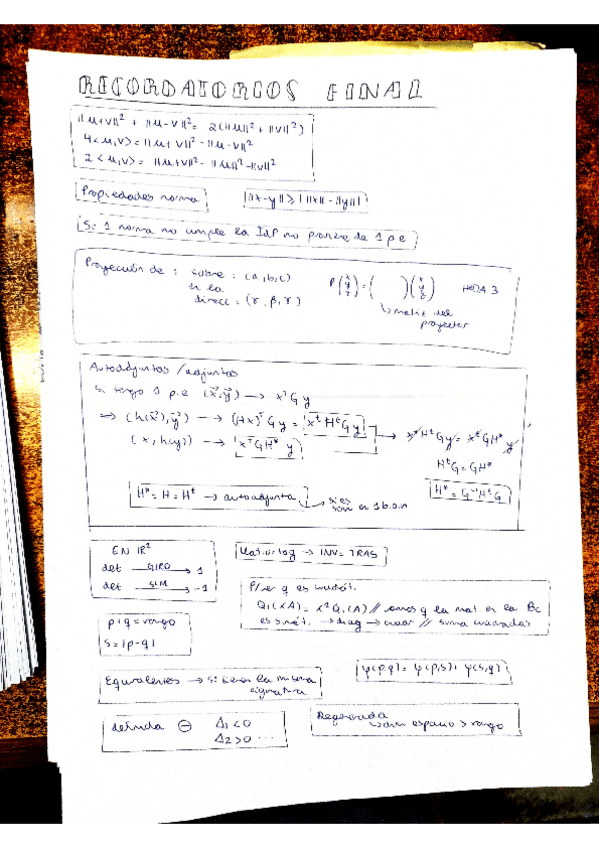 RECORDATORIOS FINAL
||u+v||² + ||u-v||² = 2(||u||² + ||v||²)
4<u,v> = ||u+v||² - ||u-v||²
2<u,v> = ||u+v||² - ||u||² - ||v||²
Propiedades norma
||x-y|| ≥ | ||x|| - ||y|| |
Si 1 norma no cumple la IdP no proviene de 1 p e
Proyección de : sobre : (a,b,c)
en la
direcc = (α, β, γ)
P(x y z) = ( )(x y z)
HOJA 3
↳ matriz del
proyector
Autoadjuntos / adjuntos
Si tengo 1 p.e (x⃗,y⃗) → xᵗ G y
⇒ (h(x⃗),y⃗) → (Hx)ᵗ G y = xᵗ Hᵗ G y
(x, h(y)) → xᵗ G H* y
→ xᵗ Hᵗ G y = xᵗ G H* y
HᵗG = GH*
H* = G⁻¹ Hᵗ G
H* = H = Hᵗ → autoadjunta
→ si es
en 1 b.o.n
EN IR²
det GIRO → 1
det SIM → -1
Mat. ortog → INV = TRAS
P/ver q es cuadrát.
Q₁(λA) = λ² Q₁(A) // vemos q la mat. en la Bc
es simét. → diag → // suma cuadrados
p+q = rango
s = |p-q|
φ(p,q) = φ(p,s) + φ(s,q)
Equivalentes → si tienen la misma
signatura
definida ⊖ Δ₁ < 0
Δ₂ > 0 ...
Degenerada
↳ dim espacio > rango